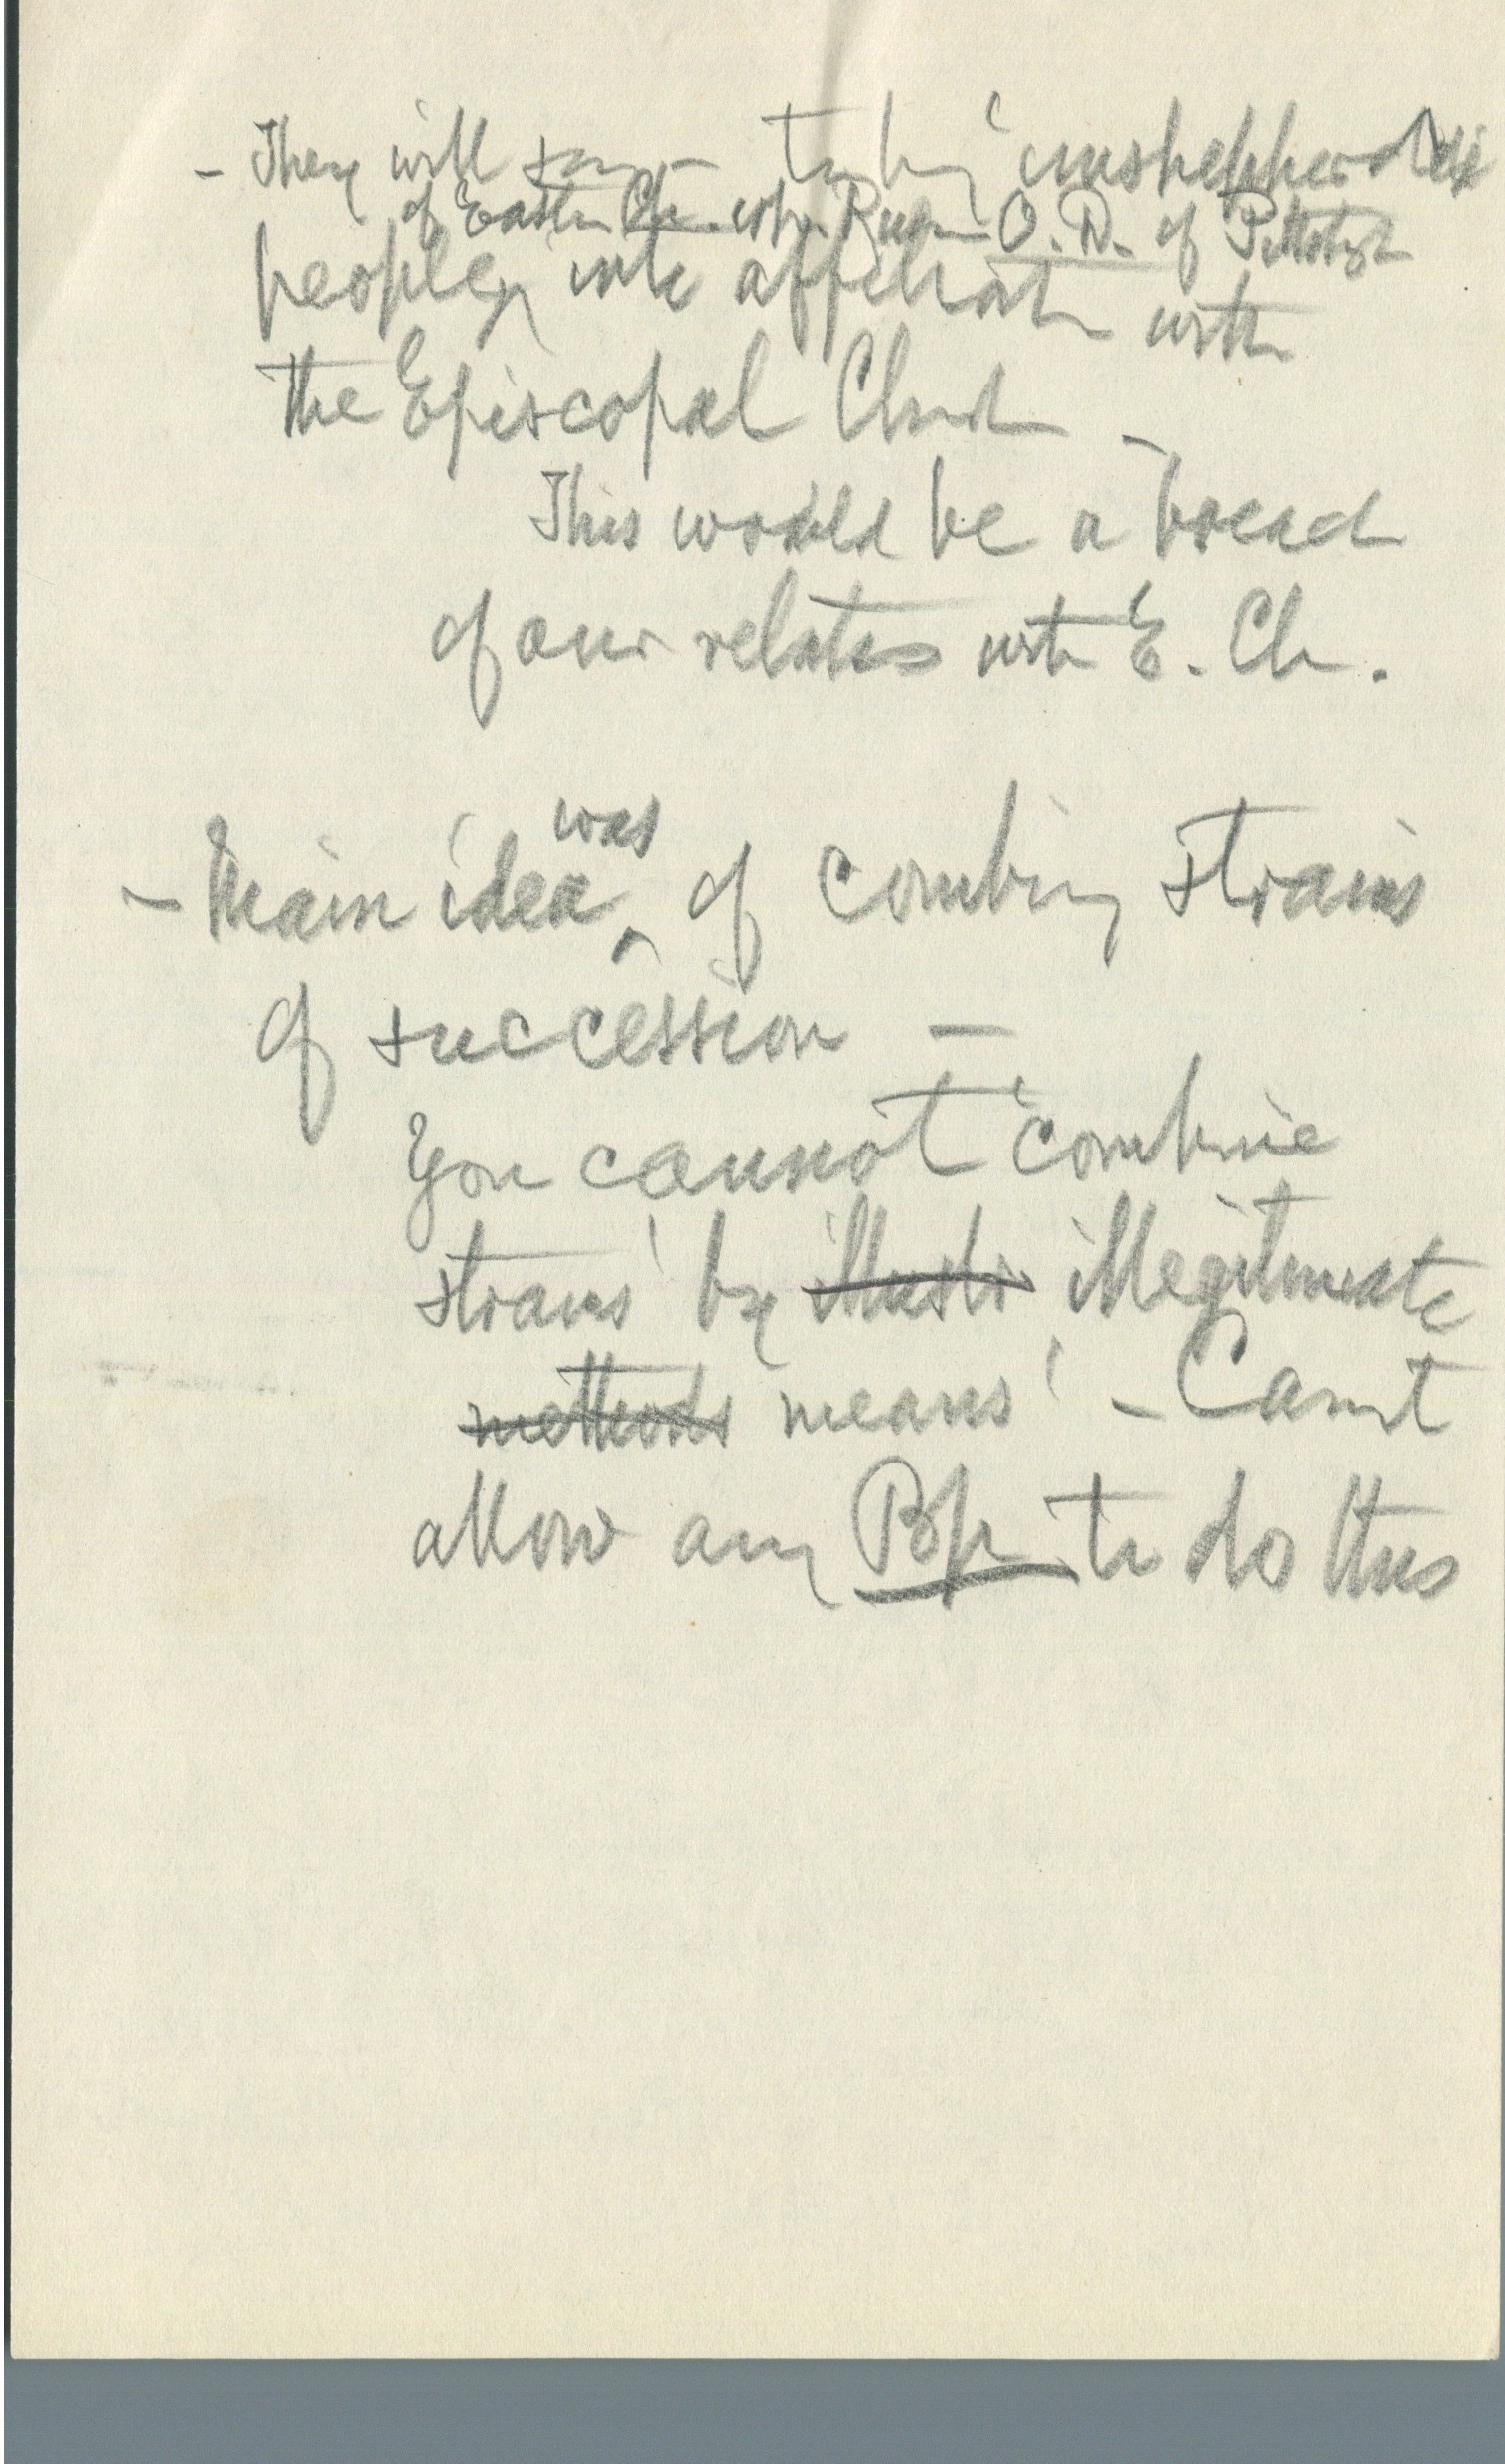 - They will say - to bring 'unshepherded
of Eastern Ch. who. O. D. of Pittsbgh
people, into affiliation with
the Episcopal Church -
This would be a breach
of our relations with E. Ch.
was
- Main idea ^ of combing strains
of succession -
You cannot 'combine
strains' by illustr illegitimate
methods means' - Cannot
allow any Bp to do this